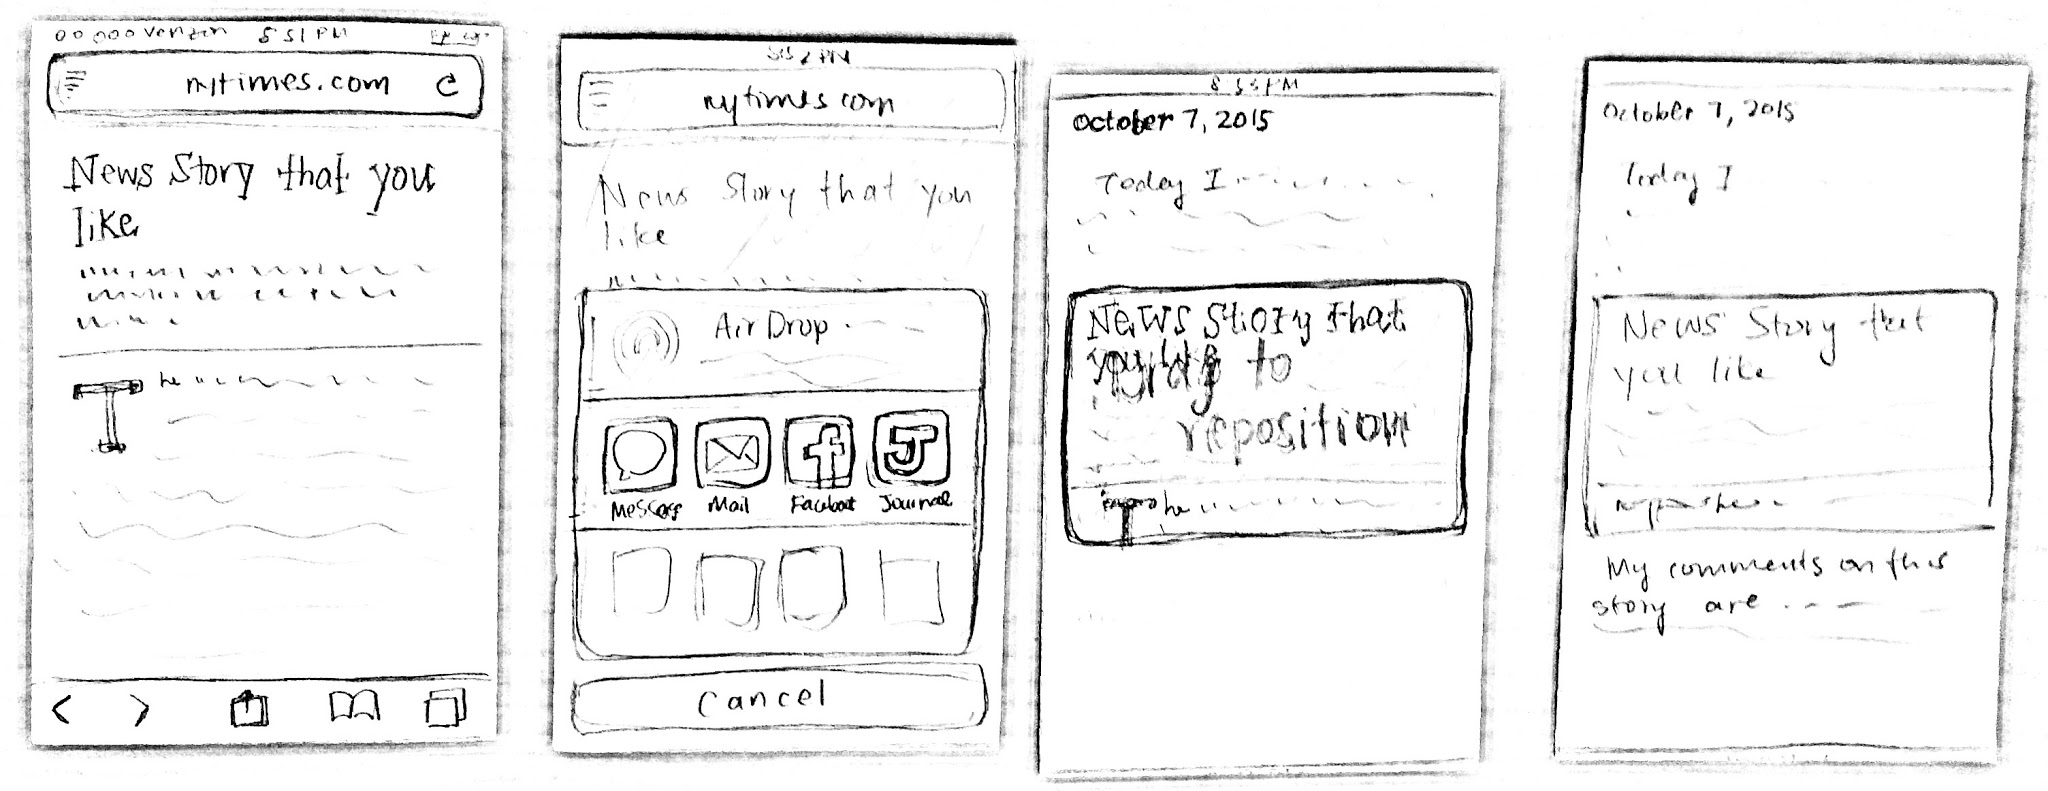 verizon 8:51 PM
nytimes.com
News Story that you
like
T he
8:52 PM
nytimes.com
News Story that you
like
AirDrop
f J
Message Mail Facebook Journal
Cancel
8:53 PM
October 7, 2015
Today I
News Story that
you like
Drag to
reposition
October 7, 2015
Today I
News Story that
you like
My comments on this
story are